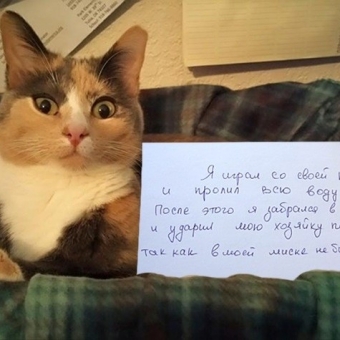 Я играл со своей
и пролил всю воду
После этого я забрался в
и ударил мою хозяйку
так как в моей миске не